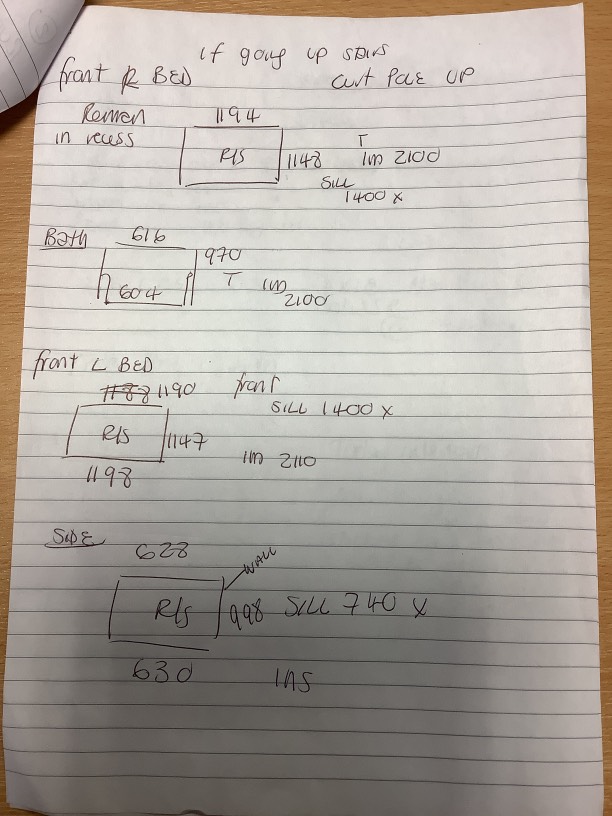 if going up stairs
front R BED cut Pole UP
Remain 1194
in recess R/S 1148 T 1m 2100
SILL
1400 x
Bath 616
970
604 T 1m
2100
front L BED
1188 1190 front
SILL 1400 x
R/S 1147
1m 2110
1198
SIDE
628 WALL
R/S 998 SILL 740 x
630 INS